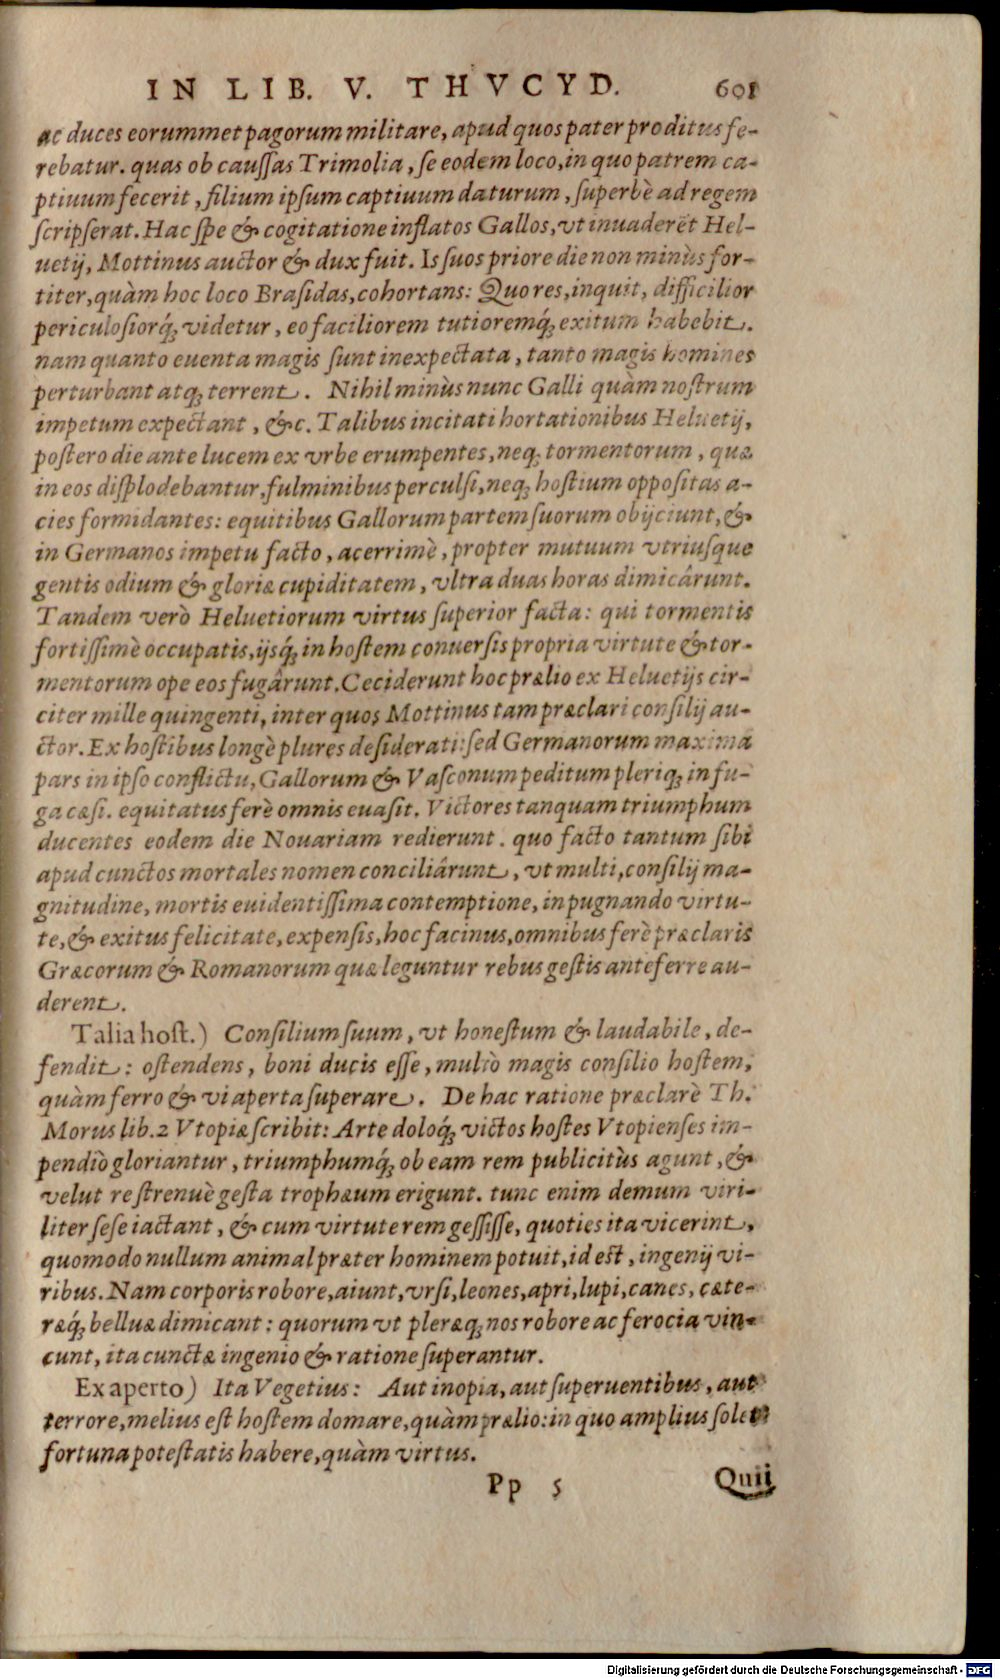 IN LIB. V. THVCYD. 601
ac duces eorummet pagorum militare, apud quos pater proditus fe-
rebatur. quas ob caussas Trimolia, se eodem loco, in quo patrem ca-
ptiuum fecerit, filium ipsum captiuum daturum, superbè ad regem
scripserat. Hac spe & cogitatione inflatos Gallos, vt inuaderēt Hel-
uetij, Mottinus auctor & dux fuit. Is suos priore die non minùs for-
titer, quàm hoc loco Brasidas, cohortans: Quo res, inquit, difficilior
periculosiorq́; videtur, eo faciliorem tutioremq́; exitum habebit.
nam quanto euenta magis sunt inexpectata, tanto magis homines
perturbant atq; terrent. Nihil minùs nunc Galli quàm nostrum
impetum expectant, &c. Talibus incitati hortationibus Heluetij,
postero die ante lucem ex vrbe erumpentes, neq; tormentorum, quæ
in eos displodebantur, fulminibus perculsi, neq; hostium oppositas a-
cies formidantes: equitibus Gallorum partem suorum obijciunt, &
in Germanos impetu facto, acerrimè, propter mutuum vtriusque
gentis odium & gloriæ cupiditatem, vltra duas horas dimicârunt.
Tandem verò Heluetiorum virtus superior facta: qui tormentis
fortissimè occupatis, ijsq́; in hostem conuersis propria virtute & tor-
mentorum ope eos fugârunt. Ceciderunt hoc prælio ex Heluetijs cir-
citer mille quingenti, inter quos Mottinus tam præclari consilij au-
ctor. Ex hostibus longè plures desiderati: sed Germanorum maxima
pars in ipso conflictu, Gallorum & Vasconum peditum pleriq; in fu-
ga cæsi. equitatus ferè omnis euasit. Victores tanquam triumphum
ducentes eodem die Nouariam redierunt. quo facto tantum sibi
apud cunctos mortales nomen conciliârunt, vt multi, consilij ma-
gnitudine, mortis euidentissima contemptione, in pugnando virtu-
te, & exitus felicitate, expensis, hoc facinus, omnibus ferè præclaris
Græcorum & Romanorum quæ leguntur rebus gestis anteferre au-
derent.
Talia host.) Consilium suum, vt honestum & laudabile, de-
fendit: ostendens, boni ducis esse, multò magis consilio hostem,
quàm ferro & vi aperta superare. De hac ratione præclarè Th.
Morus lib. 2 Vtopiæ scribit: Arte doloq́; victos hostes Vtopienses im-
pendiò gloriantur, triumphumq́; ob eam rem publicitùs agunt, &
velut re strenuè gesta trophæum erigunt. tunc enim demum viri-
liter sese iactant, & cum virtute rem gessisse, quoties ita vicerint,
quomodo nullum animal præter hominem potuit, id est, ingenij vi-
ribus. Nam corporis robore, aiunt, vrsi, leones, apri, lupi, canes, cæte-
ræq́; belluæ dimicant: quorum vt pleræq; nos robore ac ferocia vin-
cunt, ita cunctæ ingenio & ratione superantur.
Ex aperto) Ita Vegetius: Aut inopia, aut superuentibus, aut
terrore, melius est hostem domare, quàm prælio: in quo amplius solet
fortuna potestatis habere, quàm virtus.
Pp 5 Quii
Digitalisierung gefördert durch die Deutsche Forschungsgemeinschaft - DFG